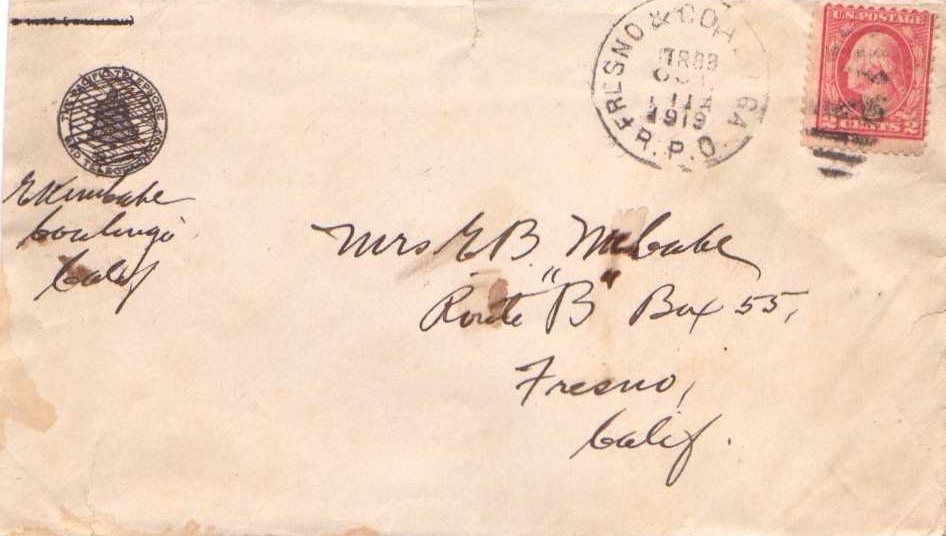 THE PACIFIC TELEPHONE
AND TELEGRAPH
Coalinga
Calif
FRESNO & COA GA
TR 88
OCT
11
1919
R.P.O.
U.S. POSTAGE
2 CENTS 2
Mrs E B. McCabe
Route "B" Box 55,
Fresno,
Calif.